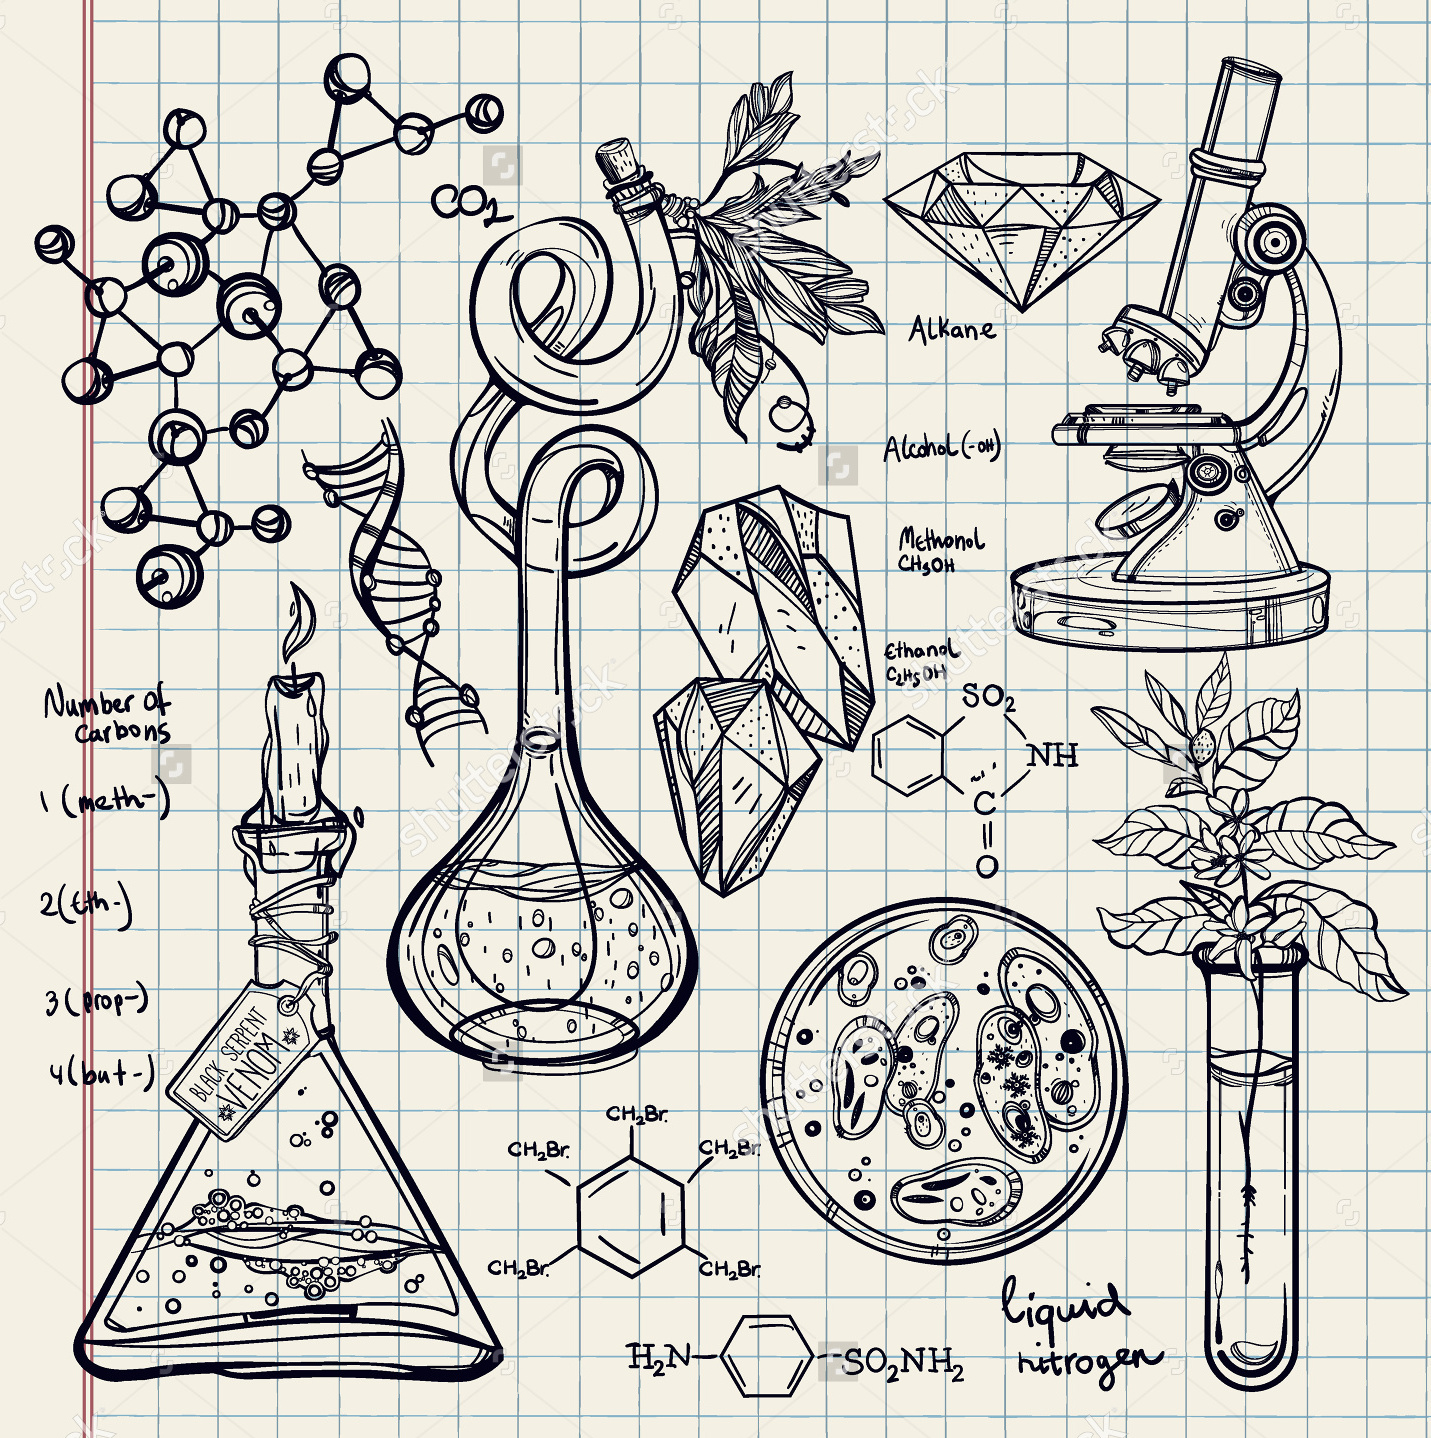 CO2
Alkane
Alcohol (-OH)
Methanol
CH3OH
Ethanol
C2H5OH
SO2
NH
C
O
Number of
carbons
1 (meth-)
2 (Eth-)
3 (prop-)
4 (but-)
BLACK SERPENT
VENOM
CH2Br.
CH2Br.
CH2Br.
CH2Br.
CH2Br.
H2N
SO2NH2
liquid
nitrogen
shutterstock